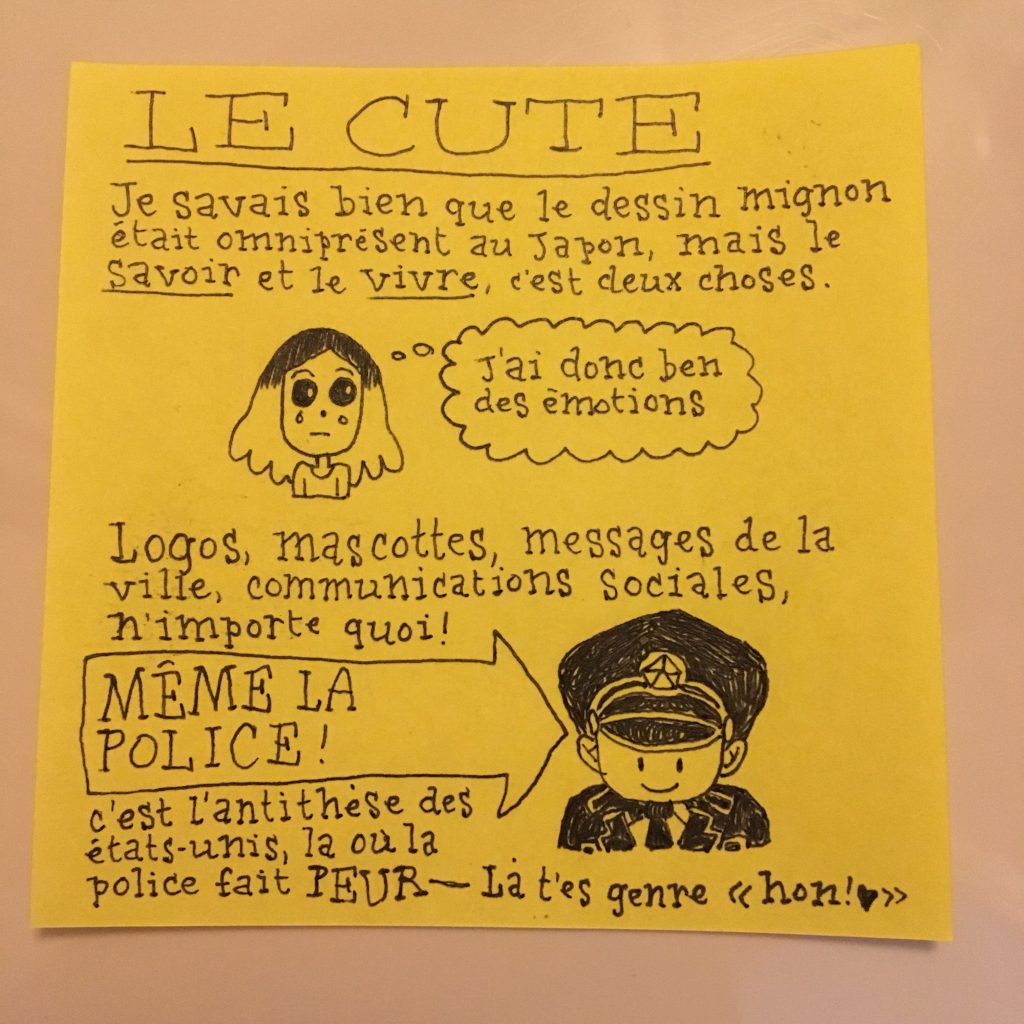 LE CUTE
Je savais bien que le dessin mignon
était omniprésent au Japon, mais le
savoir et le vivre, c'est deux choses.
J'ai donc ben
des émotions
Logos, mascottes, messages de la
ville, communications sociales,
n'importe quoi!
MÊME LA
POLICE!
c'est l'antithèse des
états-unis, la où la
police fait PEUR — Là t'es genre «hon!♥»